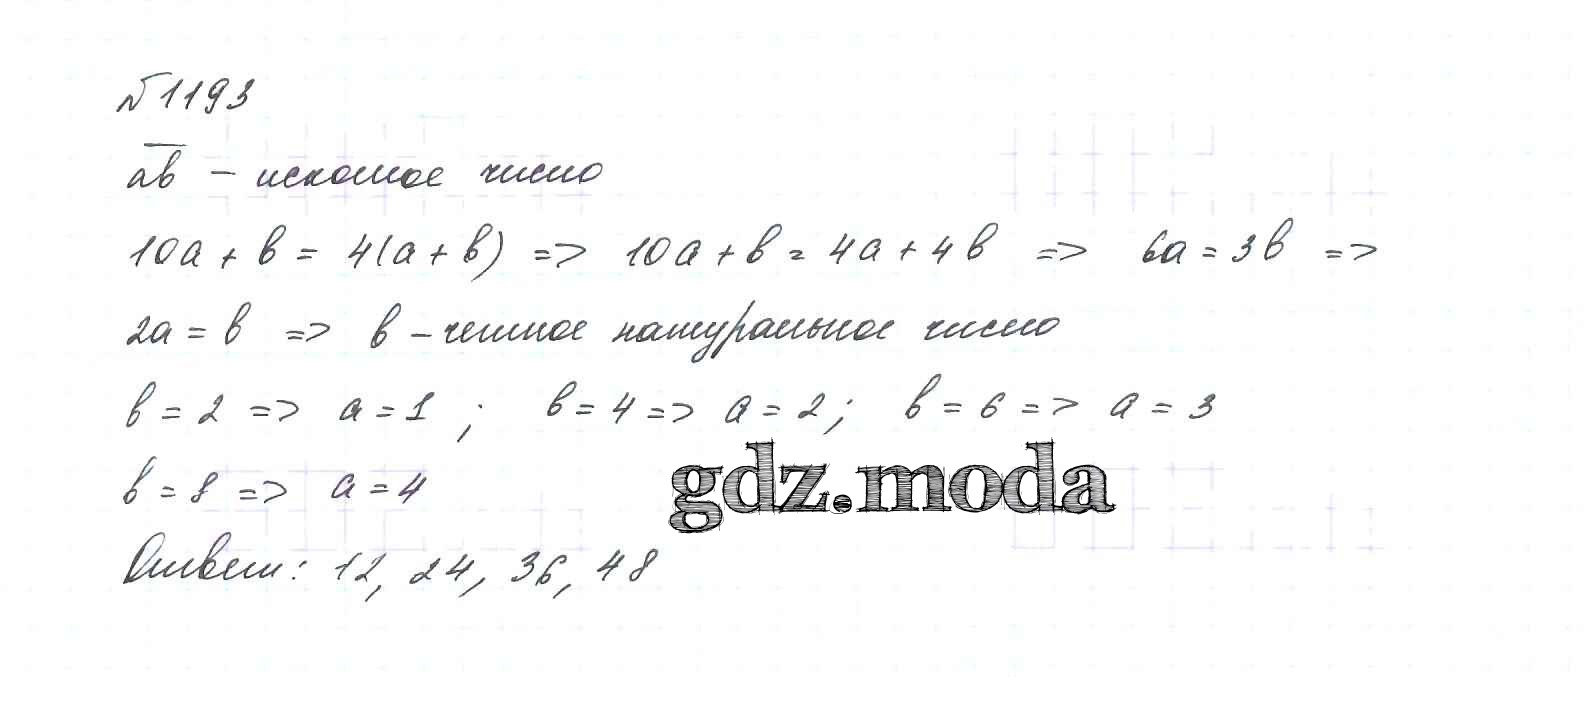 №1193
ab - искомое число
10a + b = 4(a + b) => 10a + b = 4a + 4b => 6a = 3b =>
2a = b => b - четное натуральное число
b = 2 => a = 1 ; b = 4 => a = 2; b = 6 => a = 3
b = 8 => a = 4
gdz.moda
Ответ: 12, 24, 36, 48